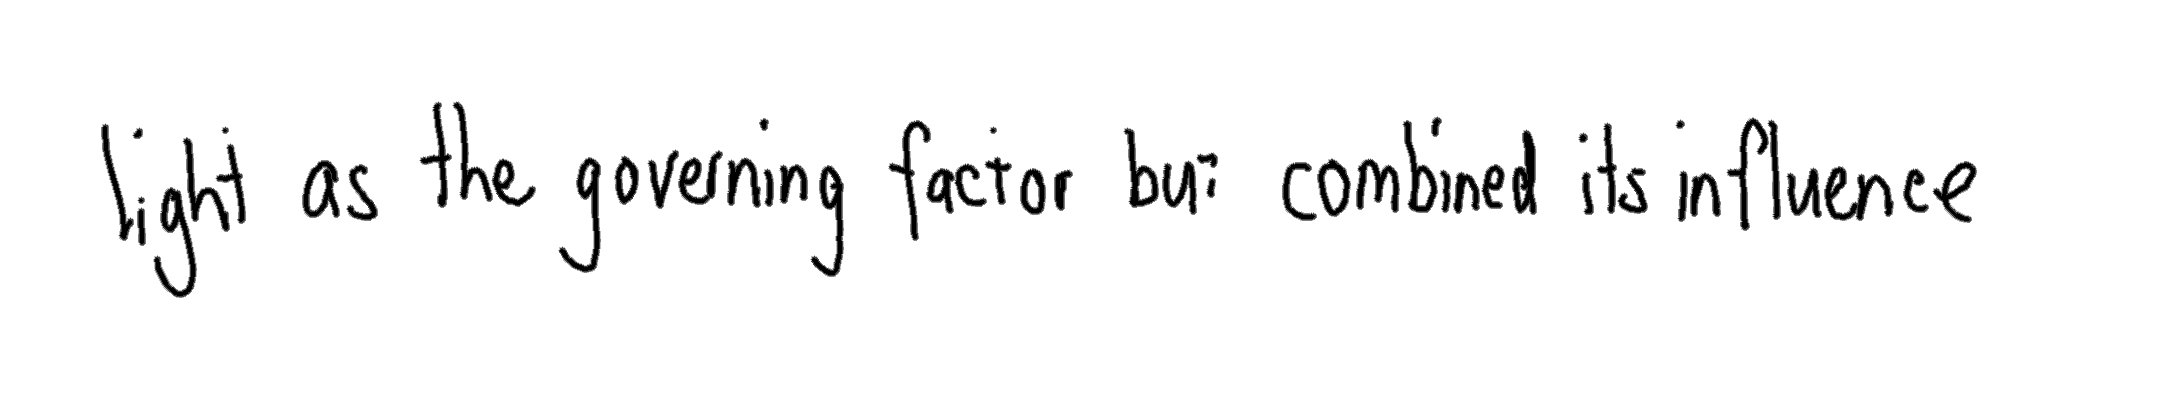 light as the governing factor but combined its influence